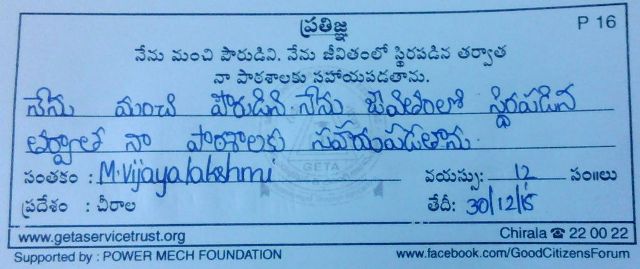 ప్రతిజ్ఞ
P 16
నేను మంచి పౌరుడిని. నేను జీవితంలో స్థిరపడిన తర్వాత
నా పాఠశాలకు సహాయపడతాను.
నేను మంచి పౌరుడిని. నేను జీవితంలో స్థిరపడిన
తర్వాత నా పాఠశాలకు సహాయపడతాను.
సంతకం : M.Vijayalakshmi వయస్సు: 12 సం॥లు
ప్రదేశం : చీరాల తేదీ: 30/12/15
www.getaservicetrust.org Chirala ☎ 22 00 22
Supported by : POWER MECH FOUNDATION www.facebook.com/GoodCitizensForum
GETA